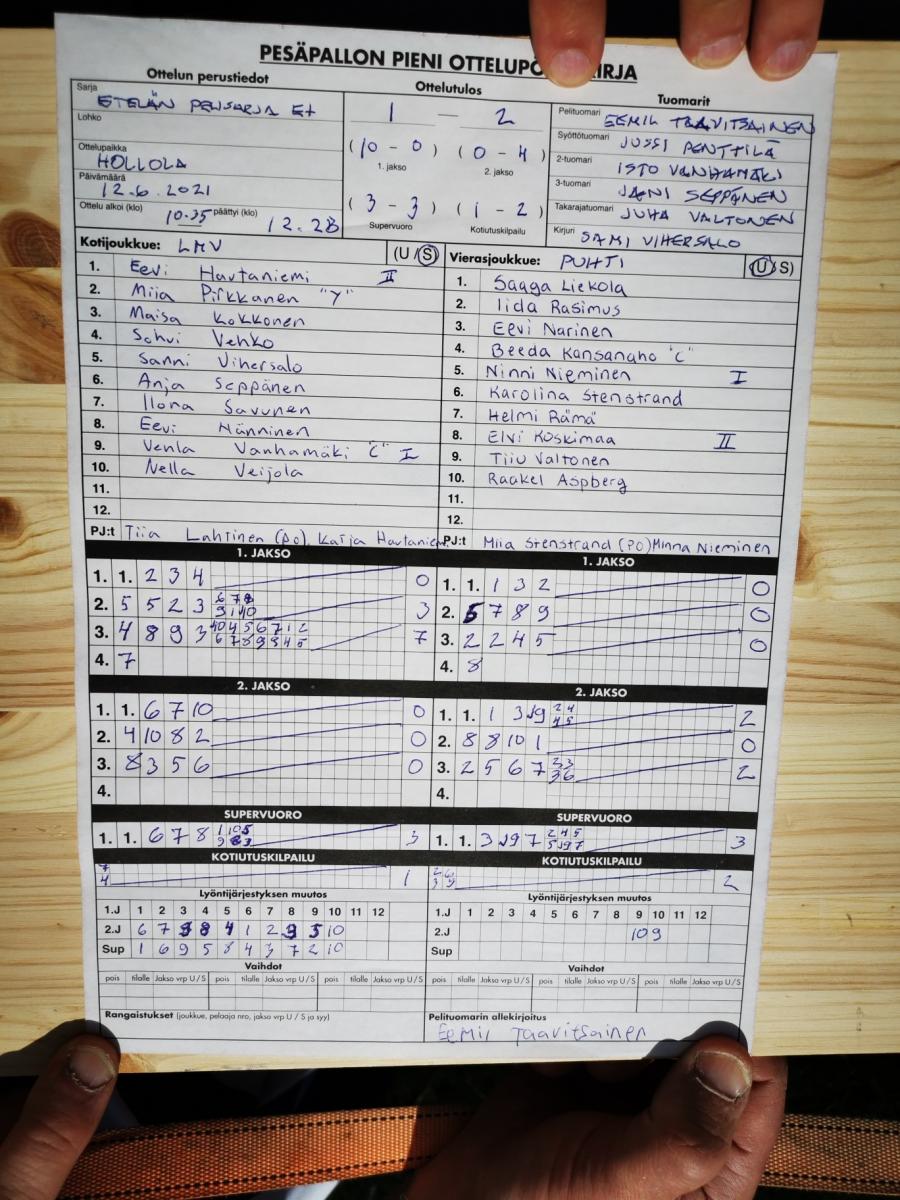 PESÄPALLON PIENI OTTELUPO KIRJA
Ottelun perustiedot
Sarja
ETELÄN
Lohko
Ottelupaikka
HOLLOLA
Päivämäärä
12.6.2021
Ottelu alkoi (klo) 10.35 päättyi (klo) 12.28
Ottelutulos
1 — 2
(10 - 0) (0 - 4)
1. jakso 2. jakso
(3 - 3) (1 - 2)
Supervuoro Kotiutuskilpailu
Tuomarit
Pelituomari EEMIL TAAVITSAINEN
Syöttötuomari JUSSI PENTTILÄ
2-tuomari ISTO VANHAMÄKI
3-tuomari JANI SEPPÄNEN
Takarajatuomari JUHA VALTONEN
Kirjuri SAMI VIHERSALO
Kotijoukkue: LMV (U/S)
1. Eevi Hautaniemi II
2. Miia Pirkkanen "Y"
3. Maisa Kokkonen
4. Vehko
5. Sanni Vihersalo
6. Anja Seppänen
7. Ilona Savunen
8. Eevi Hänninen
9. Venla Vanhamäki "C" I
10. Nella Veijola
11.
12.
PJ:t Tiia Lahtinen (PO), Katja
Vierasjoukkue: PUHTI (U/S)
1. Saaga Liekola
2. Iida Rasimus
3. Eevi Narinen
4. Beeda Kansanaho "C"
5. Ninni Nieminen I
6. Karolina Stenstrand
7. Helmi Rämä
8. Elvi Koskimaa II
9. Tiiu Valtonen
10. Raakel Aspberg
11.
12.
PJ:t Miia Stenstrand (PO) Minna Nieminen
1. JAKSO
1. 1. 2 3 4 0
2. 5 5 2 3 3
3. 4 8 9 3 7
4. 7
1. JAKSO
1. 1. 1 3 2 0
2. 5 7 8 9 0
3. 2 2 4 5 0
4. 8
2. JAKSO
1. 1. 6 7 10 0
2. 4 10 8 2 0
3. 8 3 5 6 0
4.
2. JAKSO
1. 1. 1 3 9 2 4 2
4 5
2. 8 8 10 1 0
3. 2 5 6 7 2 3 2
3 6
4.
SUPERVUORO
1. 1. 6 7 8 3
SUPERVUORO
1. 1. 3 9 7 2 4 5 3
KOTIUTUSKILPAILU
7
4 1
KOTIUTUSKILPAILU
2
Lyöntijärjestyksen muutos
1.J 1 2 3 4 5 6 7 8 9 10 11 12
2.J 6 7 3 8 4 1 2 9 5 10
Sup 1 6 9 5 8 4 3 7 2 10
Lyöntijärjestyksen muutos
1.J 1 2 3 4 5 6 7 8 9 10 11 12
2.J 10 9
Sup
Vaihdot
pois tilalle Jakso vrp U/S pois tilalle Jakso vrp U/S pois tilalle Jakso vrp U/S
Vaihdot
pois tilalle Jakso vrp U/S pois tilalle Jakso vrp U/S pois tilalle Jakso vrp U/S
Rangaistukset (joukkue, pelaaja nro, jakso vrp U / S ja syy)
Pelituomarin allekirjoitus
Eemil Taavitsainen